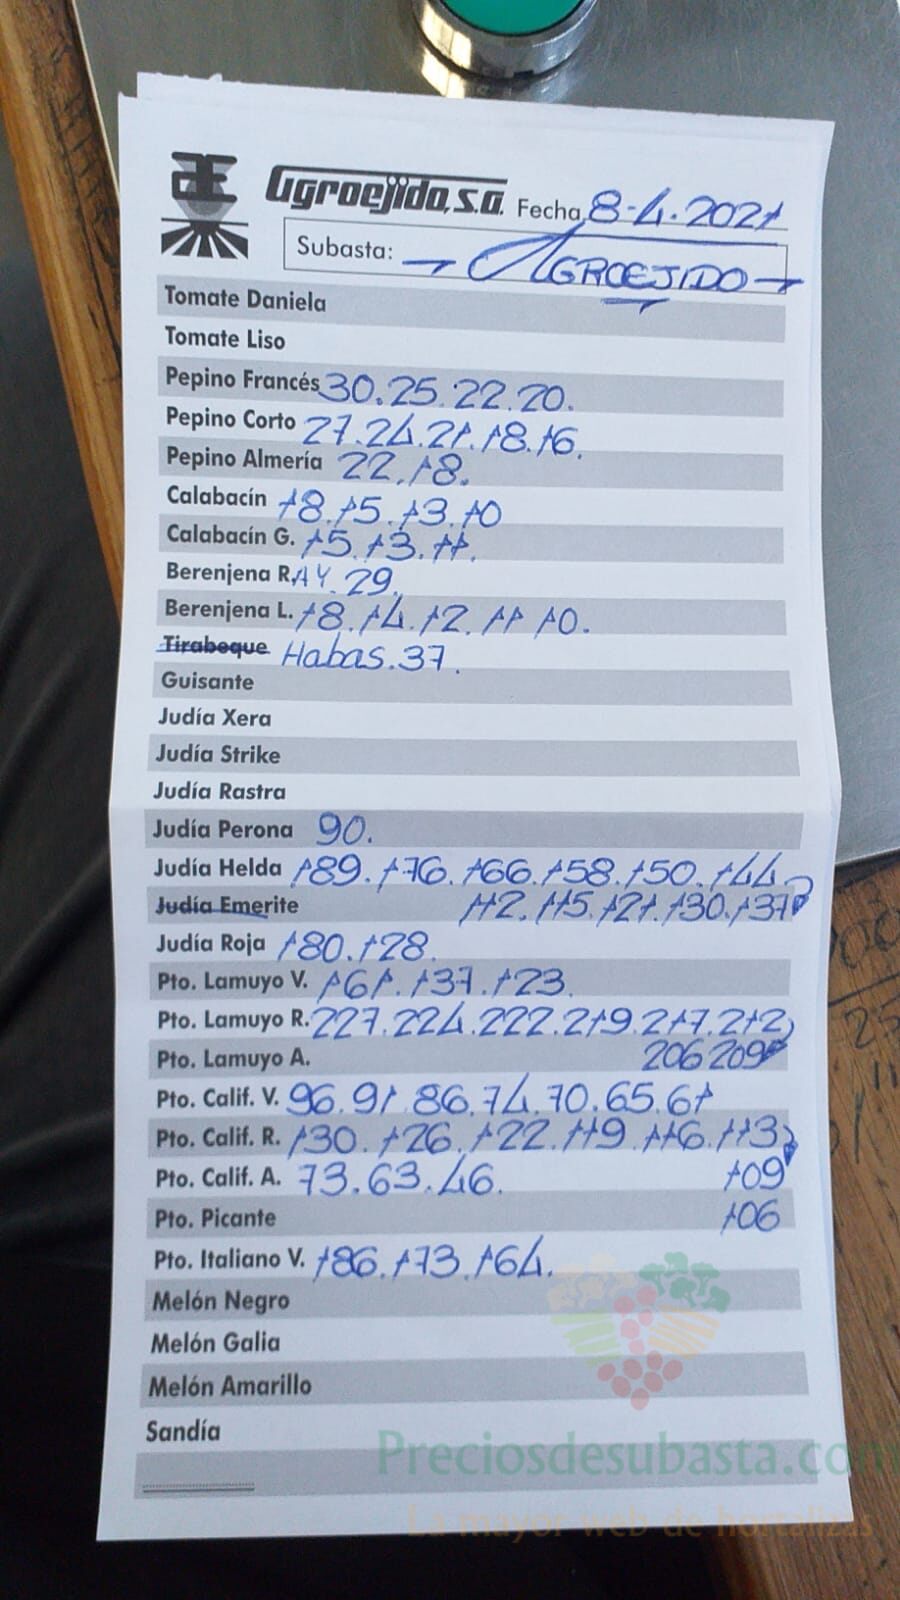 Agroejido, S.A. Fecha 8-4.2021
Subasta: AGROEJIDO
Tomate Daniela
Tomate Liso
Pepino Francés 30.25.22.20.
Pepino Corto 27.24.21.18.16.
Pepino Almería 22.18.
Calabacín 18.15.13.10
Calabacín G. 15.13.11.
Berenjena R. AY.29.
Berenjena L. 18.14.12.11 10.
Tirabeque Habas.37.
Guisante
Judía Xera
Judía Strike
Judía Rastra
Judía Perona 90.
Judía Helda 189.176.166.158.150.144
Judía Emerite 112.115.121.130.137
Judía Roja 180.128.
Pto. Lamuyo V. 161.137.123.
Pto. Lamuyo R. 227.224.222.219.217.212
Pto. Lamuyo A. 206 209
Pto. Calif. V. 96.91.86.74.70.65.61
Pto. Calif. R. 130.126.122.119.116.113
Pto. Calif. A. 73.63.46. 109
Pto. Picante 106
Pto. Italiano V. 186.173.164.
Melón Negro
Melón Galia
Melón Amarillo
Sandía
Preciosdesubasta.com
La mayor web de hortalizas